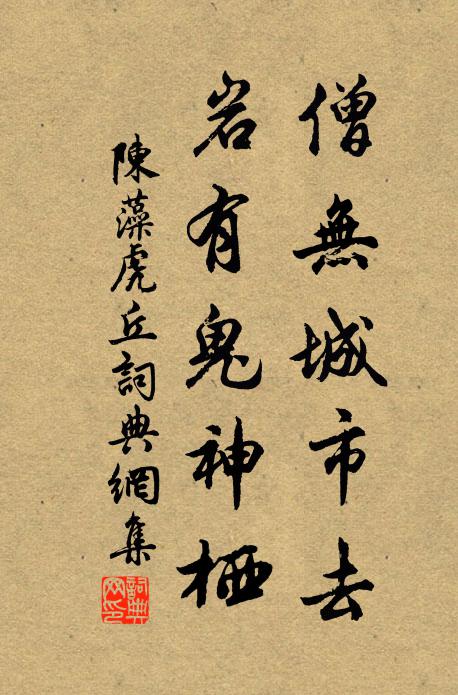 僧無城市去
岩有鬼神栖
陳藻虎丘詞典網集
詞典網印